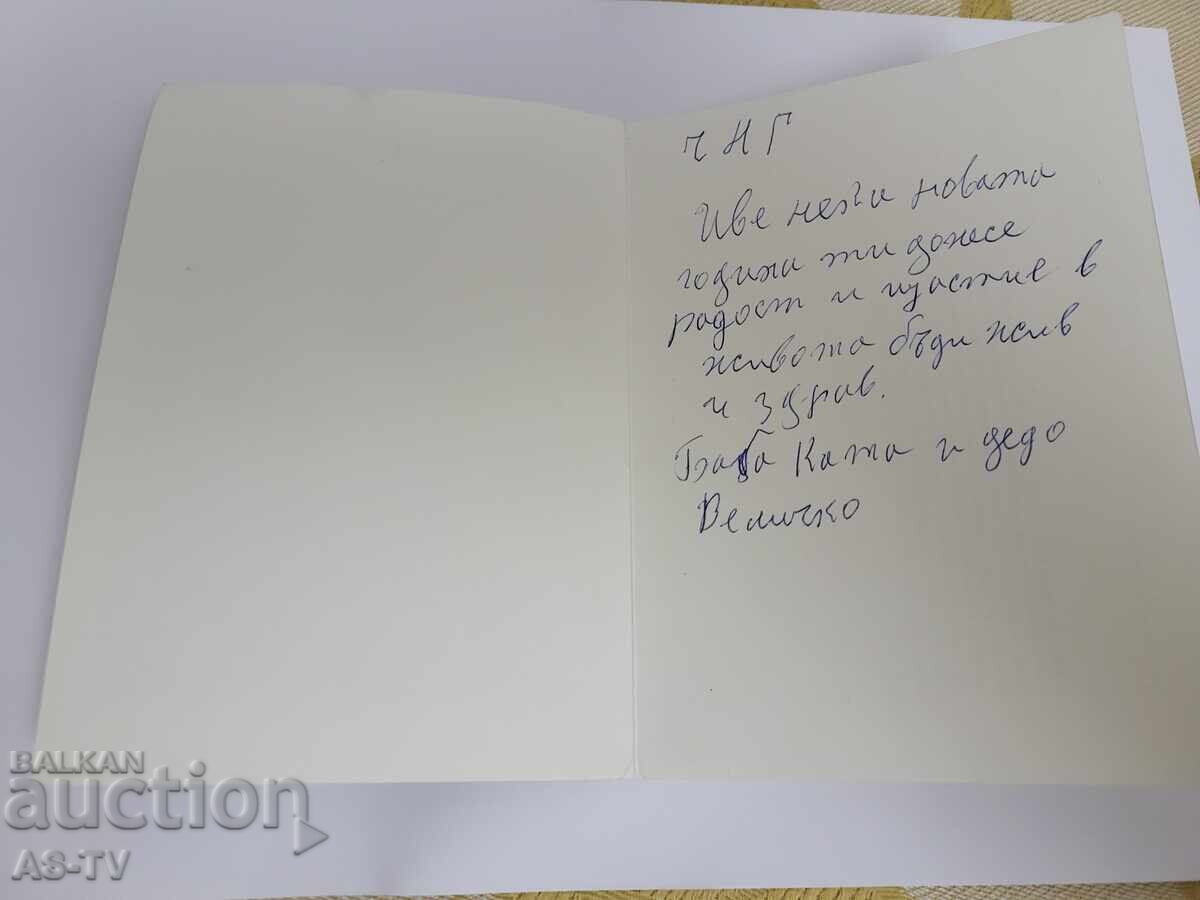 ЧНГ
Иве нека новата
година ти донесе
радост и щастие в
живота бъди жив
и здрав.
Баба Ката и дедо
Величко
BALKAN
auction
AS-TV